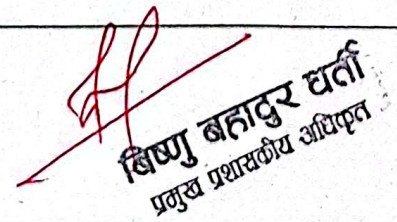 बिष्णु बहादुर घर्ती
प्रमुख प्रशासकीय अधिकृत